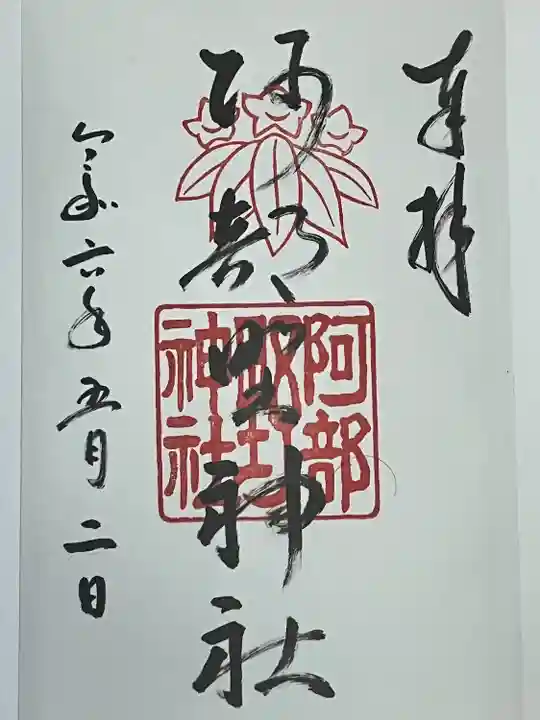 奉拝
阿部野神社
阿部
野
神社
令和六年五月二日